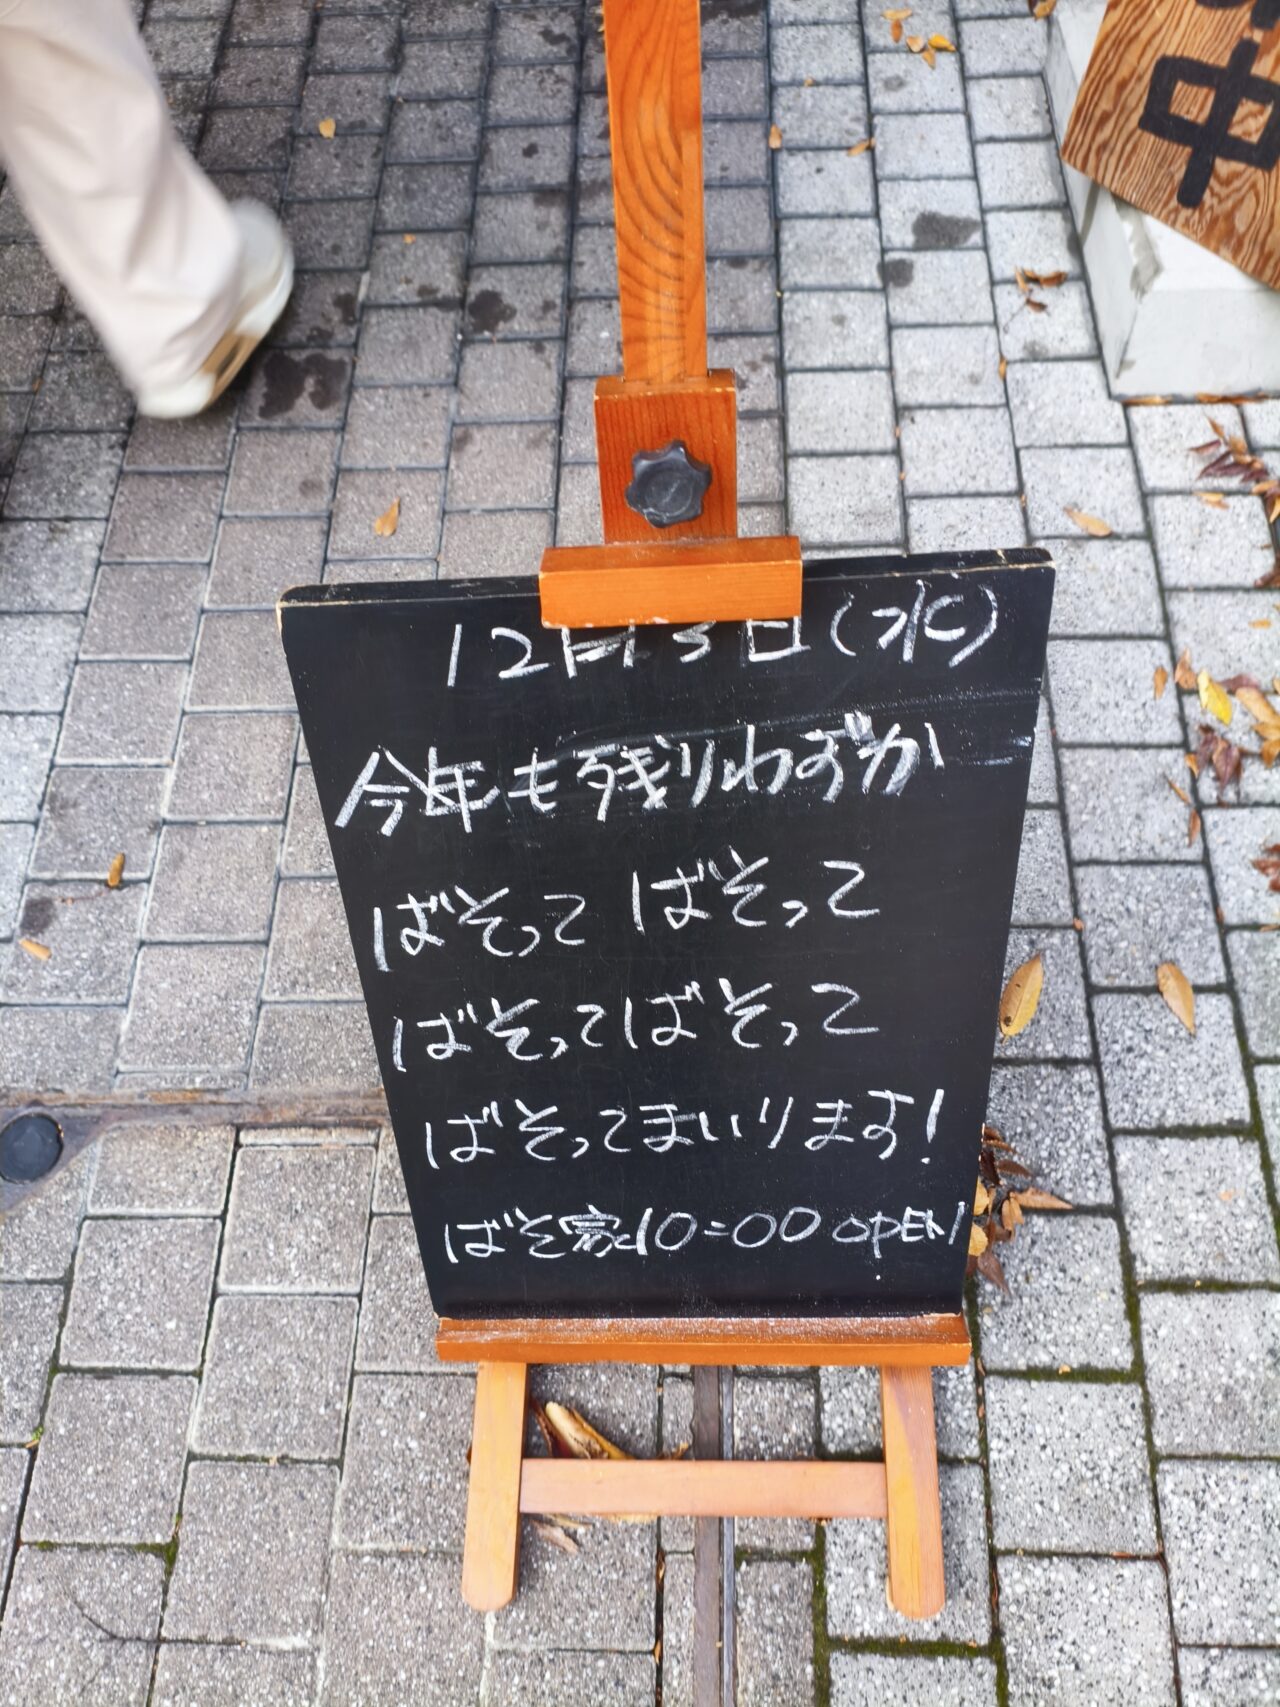 中
12月3日(水)
今年も残りわずか
ばそって ばそって
ばそってばそって
ばそってまいります!
ばそ家10:00 OPEN